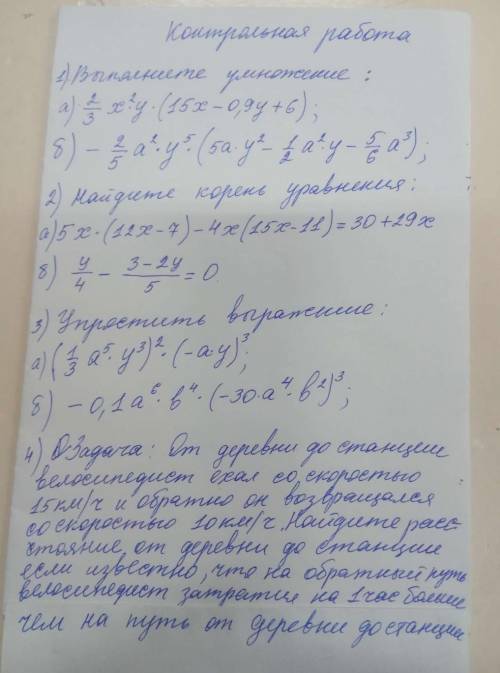 Контрольная работа
1) Выполните умножение:
а) 2/3 x²y · (15x - 0,9y + 6);
б) - 2/5 a² · y⁵ · (5a · y² - 1/2 a² · y - 5/6 a³);
2) Найдите корень уравнения:
а) 5x · (12x - 7) - 4x (15x - 11) = 30 + 29x
б) y/4 - (3 - 2y)/5 = 0.
3) Упростить выражение:
а) (1/3 a⁵ · y³)² · (-a · y)³;
б) - 0,1a⁶ · b⁴ · (-30 · a⁴ · b²)³;
4) Задача: От деревни до станции
велосипедист ехал со скоростью
15 км/ч и обратно он возвращался
со скоростью 10 км/ч. Найдите расс-
стояние от деревни до станции
если известно, что на обратный путь
велосипедист затратил на 1 час больше
чем на путь от деревни до станции